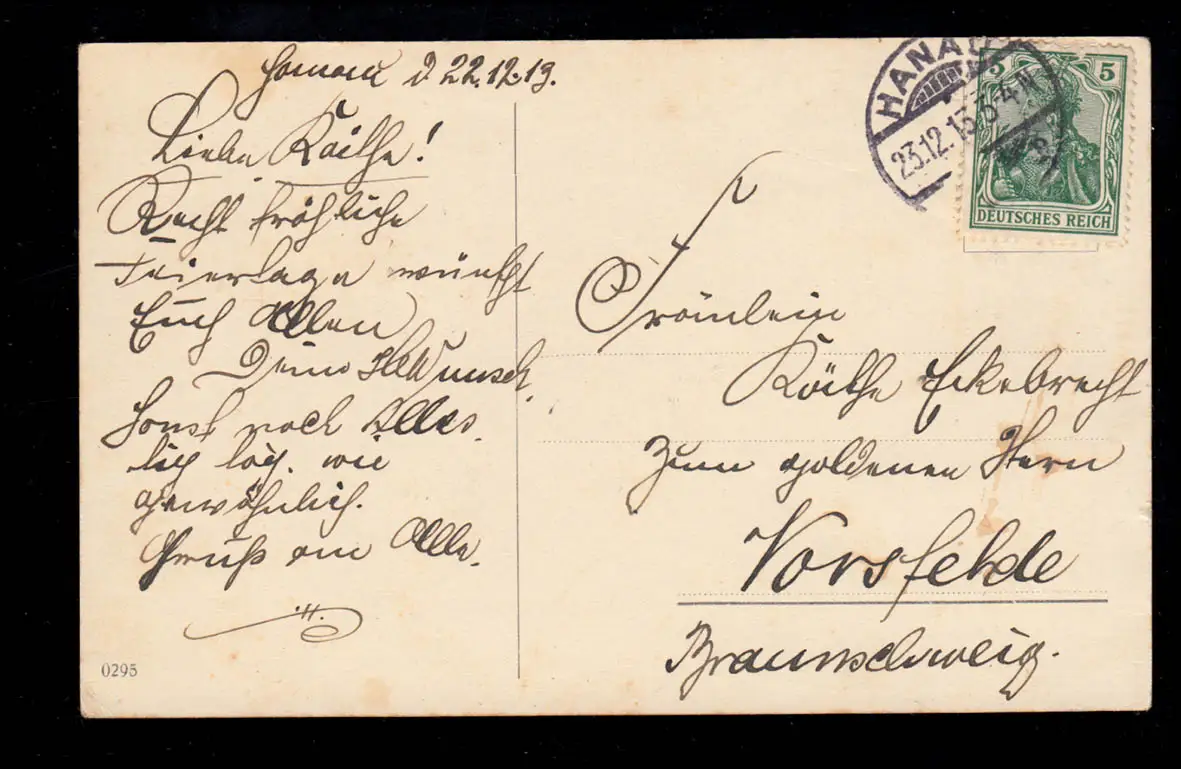 Hanau d 22.12.13.
Liebe Käthe!
Recht fröhliche
Feiertage wünscht
Euch Allen
Deine
Sonst noch Alles
wie
gewöhnlich.
Gruß an Alle.
0295
HANAU
23.12.13. 3-4 N
5 5
DEUTSCHES REICH
Fräulein
Käthe Eckebrecht
Zum goldenen Stern
Vorsfelde
Braunschweig.